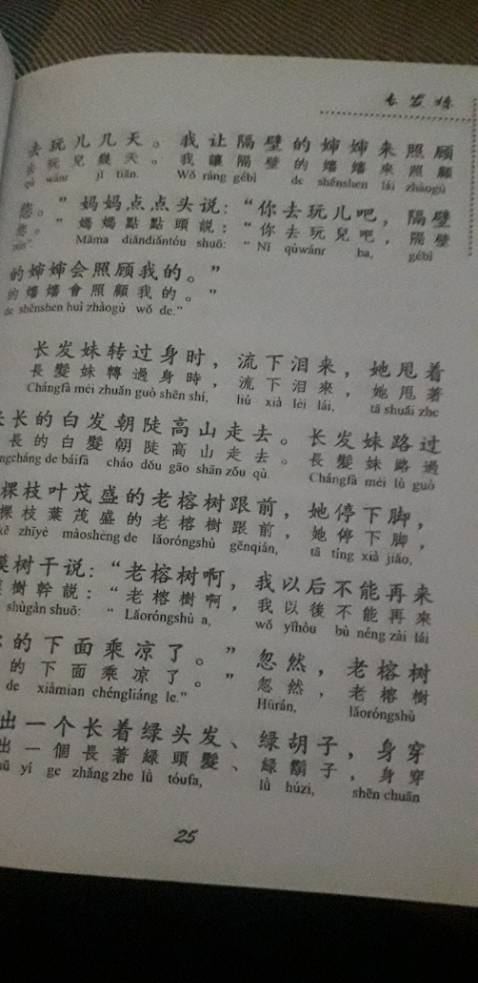 长发妹
去玩儿几天。我让隔壁的婶婶来照顾
去玩兒幾天。我讓隔壁的嬸嬸來照顧
qù wánr jǐ tiān. Wǒ ràng gébì de shěnshen lái zhàogù
您。”妈妈点点头说：“你去玩儿吧，隔壁
您。”媽媽點點頭說：“你去玩兒吧，隔壁
nín.” Māma diǎndiǎntóu shuō: “Nǐ qùwánr ba, gébì
的婶婶会照顾我的。”
的嬸嬸會照顧我的。”
de shěnshen huì zhàogù wǒ de.”
长发妹转过身时，流下泪来，她甩着
長髮妹轉過身時，流下淚來，她甩著
Chángfà mèi zhuǎn guò shēn shí, liú xià lèi lái, tā shuǎi zhe
长的白发朝陡高山走去。长发妹路过
長的白髮朝陡高山走去。長髮妹路過
ngcháng de báifà cháo dǒu gāo shān zǒu qù. Chángfà mèi lù guò
棵枝叶茂盛的老榕树跟前，她停下脚，
棵枝葉茂盛的老榕樹跟前，她停下腳，
kē zhīyè màoshèng de lǎoróngshù gēnqián, tā tíng xià jiǎo,
树干说：“老榕树啊，我以后不能再来
樹幹說：“老榕樹啊，我以後不能再來
shùgàn shuō: “Lǎoróngshù a, wǒ yǐhòu bù néng zài lái
的下面乘凉了。”忽然，老榕树
的下面乘凉了。”忽然，老榕樹
de xiàmian chéngliáng le.” Hūrán, lǎoróngshù
出一个长着绿头发、绿胡子，身穿
出一個長著綠頭髮、綠鬍子，身穿
ū yí ge zhǎng zhe lǜ tóufa, lǜ húzi, shēn chuān
25